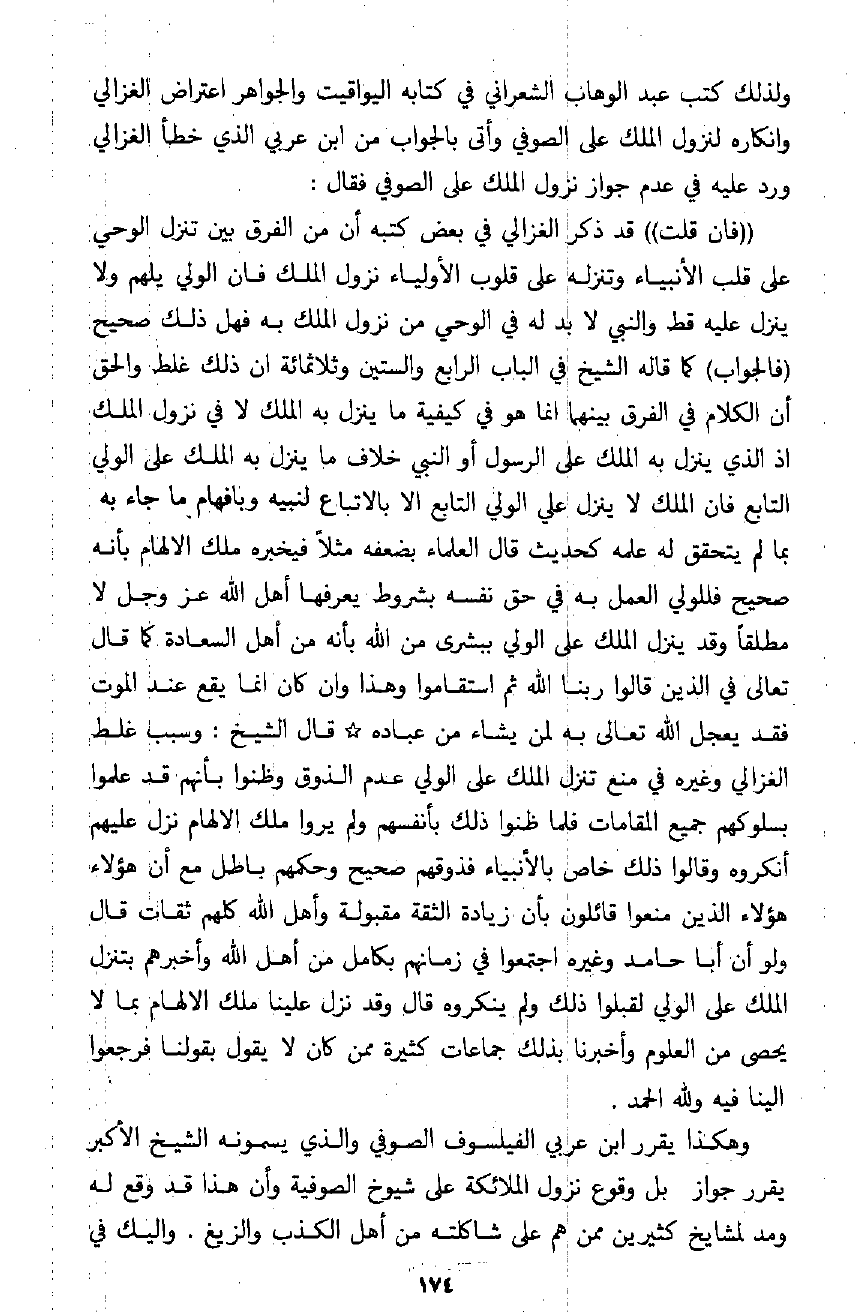 ولذلك كتب عبد الوهاب الشعراني في كتابه اليواقيت والجواهر اعتراض الغزالي
وانكاره لنزول الملك على الصوفي وأتى بالجواب من ابن عربي الذي خطأ الغزالي
ورد عليه في عدم جواز نزول الملك على الصوفي فقال :
((فان قلت)) قد ذكر الغزالي في بعض كتبه أن من الفرق بين تنزل الوحي
على قلب الأنبياء وتنزله على قلوب الأولياء نزول الملك فان الولي يلهم ولا
ينزل عليه قط والنبي لا بد له في الوحي من نزول الملك به فهل ذلك صحيح
(فالجواب) كما قاله الشيخ في الباب الرابع والستين وثلاثمائة ان ذلك غلط والحق
أن الكلام في الفرق بينهما انما هو في كيفية ما ينزل به الملك لا في نزول الملك
اذ الذي ينزل به الملك على الرسول أو النبي خلاف ما ينزل به الملك على الولي
التابع فان الملك لا ينزل علي الولي التابع الا بالاتباع لنبيه وبافهام ما جاء به
بما لم يتحقق له علمه كحديث قال العلماء بضعفه مثلاً فيخبره ملك الالهام بأنه
صحيح فللولي العمل به في حق نفسه بشروط يعرفها أهل الله عز وجل لا
مطلقاً وقد ينزل الملك على الولي ببشرى من الله بأنه من أهل السعادة كما قال
تعالى في الذين قالوا ربنا الله ثم استقاموا وهذا وان كان انما يقع عند الموت
فقد يعجل الله تعالى به لمن يشاء من عباده ☆ قال الشيخ : وسبب غلط
الغزالي وغيره في منع تنزل الملك على الولي عدم الذوق وظنوا بأنهم قد علموا
بسلوكهم جميع المقامات فلما ظنوا ذلك بأنفسهم ولم يروا ملك الالهام نزل عليهم
أنكروه وقالوا ذلك خاص بالأنبياء فذوقهم صحيح وحكمهم باطل مع أن هؤلاء
هؤلاء الذين منعوا قائلون بأن زيادة الثقة مقبولة وأهل الله كلهم ثقات قال
ولو أن أبا حامد وغيره اجتمعوا في زمانهم بكامل من أهل الله وأخبرهم بتنزل
الملك على الولي لقبلوا ذلك ولم ينكروه قال وقد نزل علينا ملك الالهام بما لا
يحصى من العلوم وأخبرنا بذلك جماعات كثيرة ممن كان لا يقول بقولنا فرجعوا
الينا فيه ولله الحمد .
وهكذا يقرر ابن عربي الفيلسوف الصوفي والذي يسمونه الشيخ الأكبر
يقرر جواز بل وقوع نزول الملائكة على شيوخ الصوفية وأن هذا قد وقع له
ومد لمشايخ كثيرين ممن هم على شاكلته من أهل الكذب والزيغ . واليك في
١٧٤